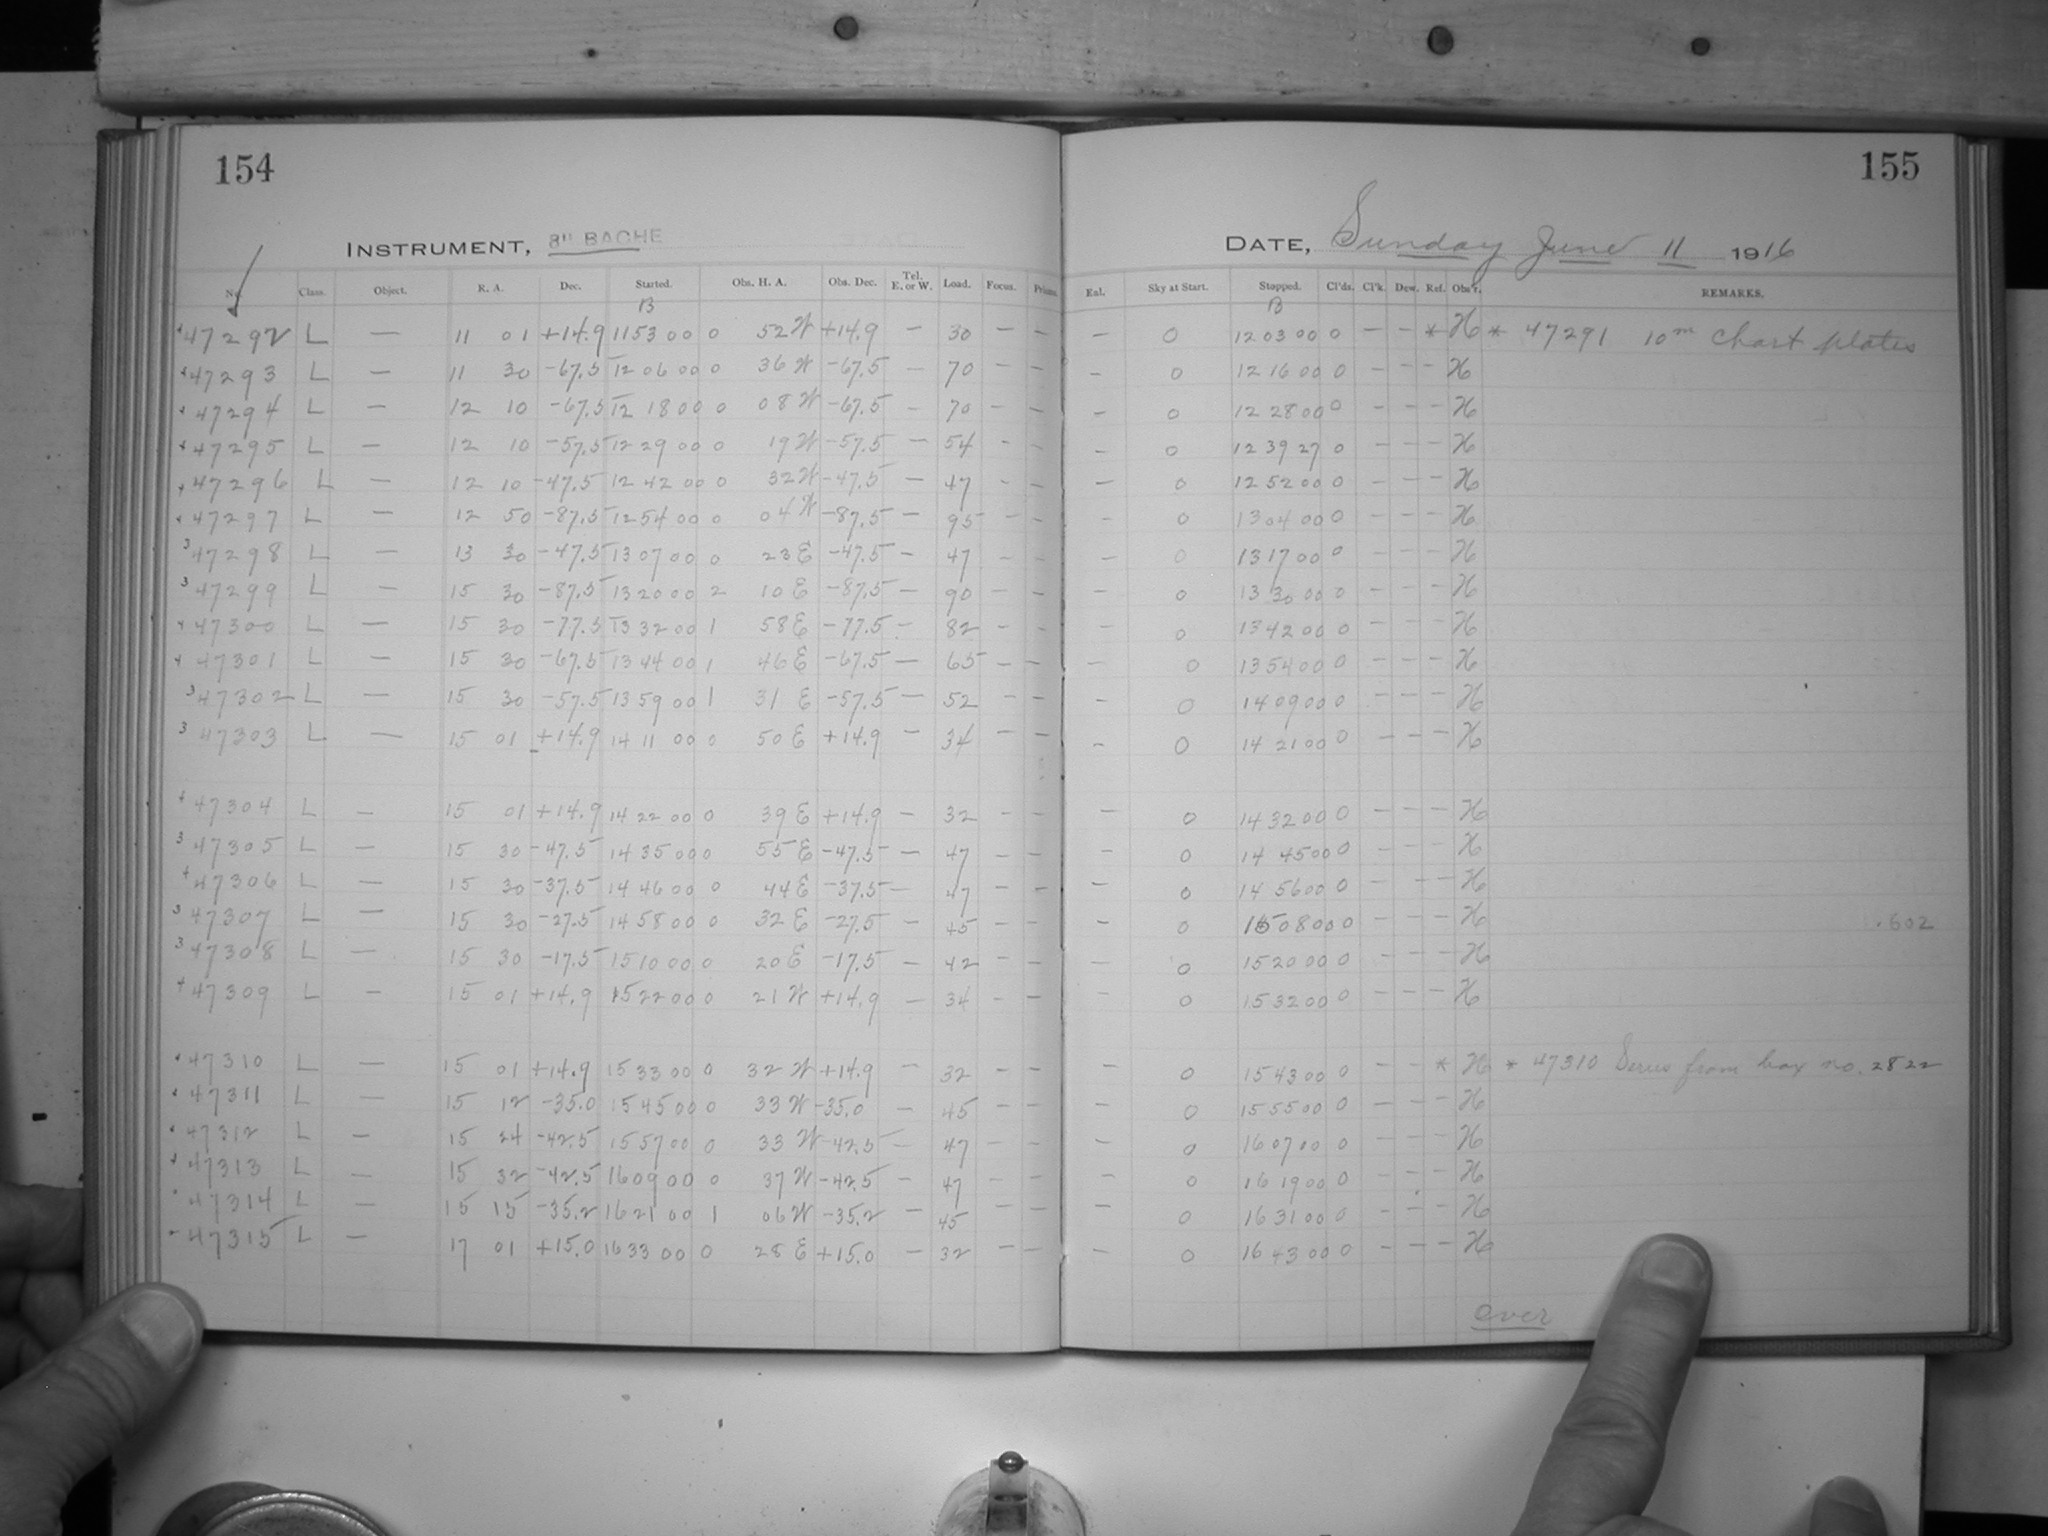 154
155
INSTRUMENT, 8" BACHE
DATE, Sunday June 11 1916
No. Class. Object. R. A. Dec. Started. Obs. H. A. Obs. Dec. Tel. E. or W. Load. Focus. Prisms. Exl. Sky at Start. Stopped. Cl'ds. Cl'k. Dew. Ref. Obs'r. REMARKS.
B B
47292 L — 11 01 +14.9 11 53 00 0 52 W +14.9 — 30 — 0 12 03 00 0 — — * H * 47291 10m Chart plates
47293 L — 11 30 -67.5 12 06 00 0 36 W -67.5 — 70 — — — 0 12 16 00 0 — — — H
47294 L — 12 10 -67.5 12 18 00 0 08 W -67.5 — 70 — — — 0 12 28 00 0 — — — H
47295 L — 12 10 -57.5 12 29 00 0 19 W -57.5 — 54 — — — 0 12 39 27 0 — — — H
47296 L — 12 10 -47.5 12 42 00 0 32 W -47.5 — 47 — — — 0 12 52 00 0 — — — H
47297 L — 12 50 -87.5 12 54 00 0 04 W -87.5 — 95 — — — 0 13 04 00 0 — — — H
3 47298 L — 13 30 -47.5 13 07 00 0 23 E -47.5 — 47 — — — 0 13 17 00 0 — — — H
3 47299 L — 15 30 -87.5 13 20 00 2 10 E -87.5 — 90 — — — 0 13 30 00 0 — — — H
47300 L — 15 30 -77.5 13 32 00 1 58 E -77.5 — 82 — — — 0 13 42 00 0 — — — H
47301 L — 15 30 -67.5 13 44 00 1 46 E -67.5 — 65 — — — 0 13 54 00 0 — — — H
3 47302 L — 15 30 -57.5 13 59 00 1 31 E -57.5 — 52 — — — 0 14 09 00 0 — — — H
3 47303 L — 15 01 +14.9 14 11 00 0 50 E +14.9 — 34 — — — 0 14 21 00 0 — — — H
47304 L — 15 01 +14.9 14 22 00 0 39 E +14.9 — 32 — — — 0 14 32 00 0 — — — H
3 47305 L — 15 30 -47.5 14 35 00 0 55 E -47.5 — 47 — — — 0 14 45 00 0 — — — H
47306 L — 15 30 -37.5 14 46 00 0 44 E -37.5 — 47 — — — 0 14 56 00 0 — — — H
3 47307 L — 15 30 -27.5 14 58 00 0 32 E -27.5 — 45 — — — 0 15 08 00 0 — — — H .602
3 47308 L — 15 30 -17.5 15 10 00 0 20 E -17.5 — 42 — — — 0 15 20 00 0 — — — H
47309 L — 15 01 +14.9 15 22 00 0 21 W +14.9 — 34 — — — 0 15 32 00 0 — — — H
47310 L — 15 01 +14.9 15 33 00 0 32 W +14.9 — 32 — — — 0 15 43 00 0 — — * H * 47310 Series from box no. 2822
47311 L — 15 12 -35.0 15 45 00 0 33 W -35.0 — 45 — — — 0 15 55 00 0 — — — H
47312 L — 15 24 -42.5 15 57 00 0 33 W -42.5 — 47 — — — 0 16 07 00 0 — — — H
47313 L — 15 32 -42.5 16 09 00 0 37 W -42.5 — 47 — — — 0 16 19 00 0 — — — H
47314 L — 15 15 -35.2 16 21 00 1 06 W -35.2 — 45 — — — 0 16 31 00 0 — — — H
47315 L — 17 01 +15.0 16 33 00 0 28 E +15.0 — 32 — — — 0 16 43 00 0 — — — H
over